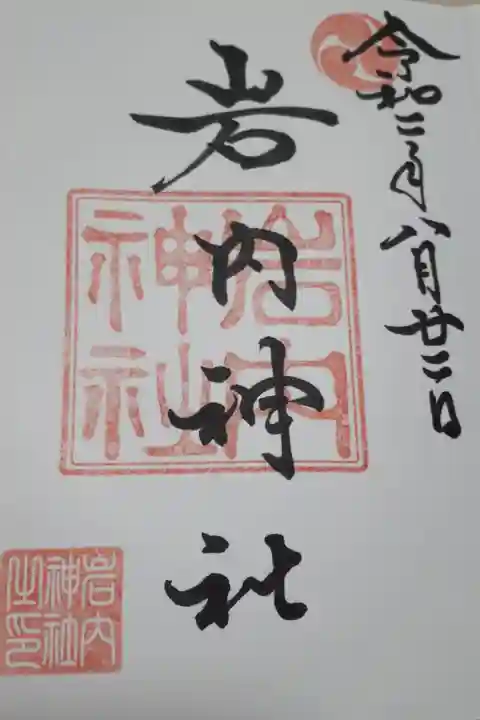 令和二年八月廿二日
岩内神社
岩内
神社
岩内
神社
之印